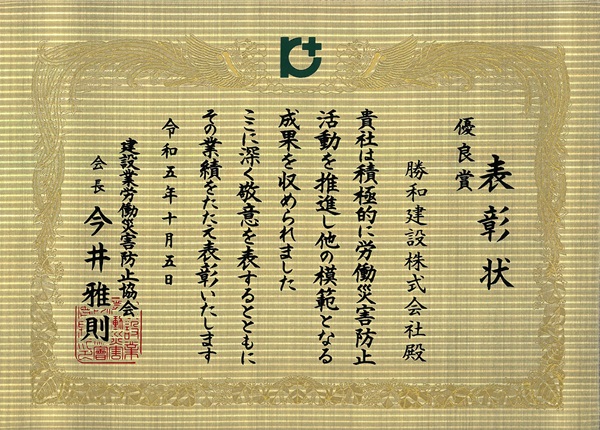 表彰状
優良賞
勝和建設株式会社殿
貴社は積極的に労働災害防止
活動を推進し他の模範となる
成果を収められました
ここに深く敬意を表するとともに
その業績をたたえ表彰いたします
令和五年十月五日
建設業労働災害防止協会
会長 今井雅則